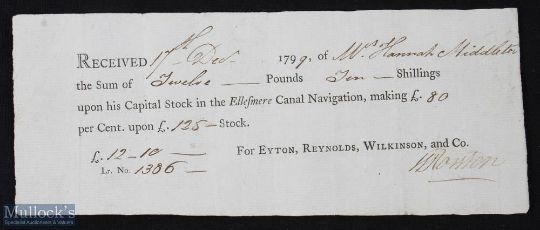 RECEIVED 17th Decr 1799, of Mrs Hannah Middleton
the Sum of Twelve Pounds Ten Shillings
upon his Capital Stock in the Ellesmere Canal Navigation, making £. 80
per Cent. upon £. 125 — Stock.
£. 12 - 10 — For EYTON, REYNOLDS, WILKINSON, and Co.
Lr. No. 1386 —
Mullock's
Specialist Auctioneers & Valuers